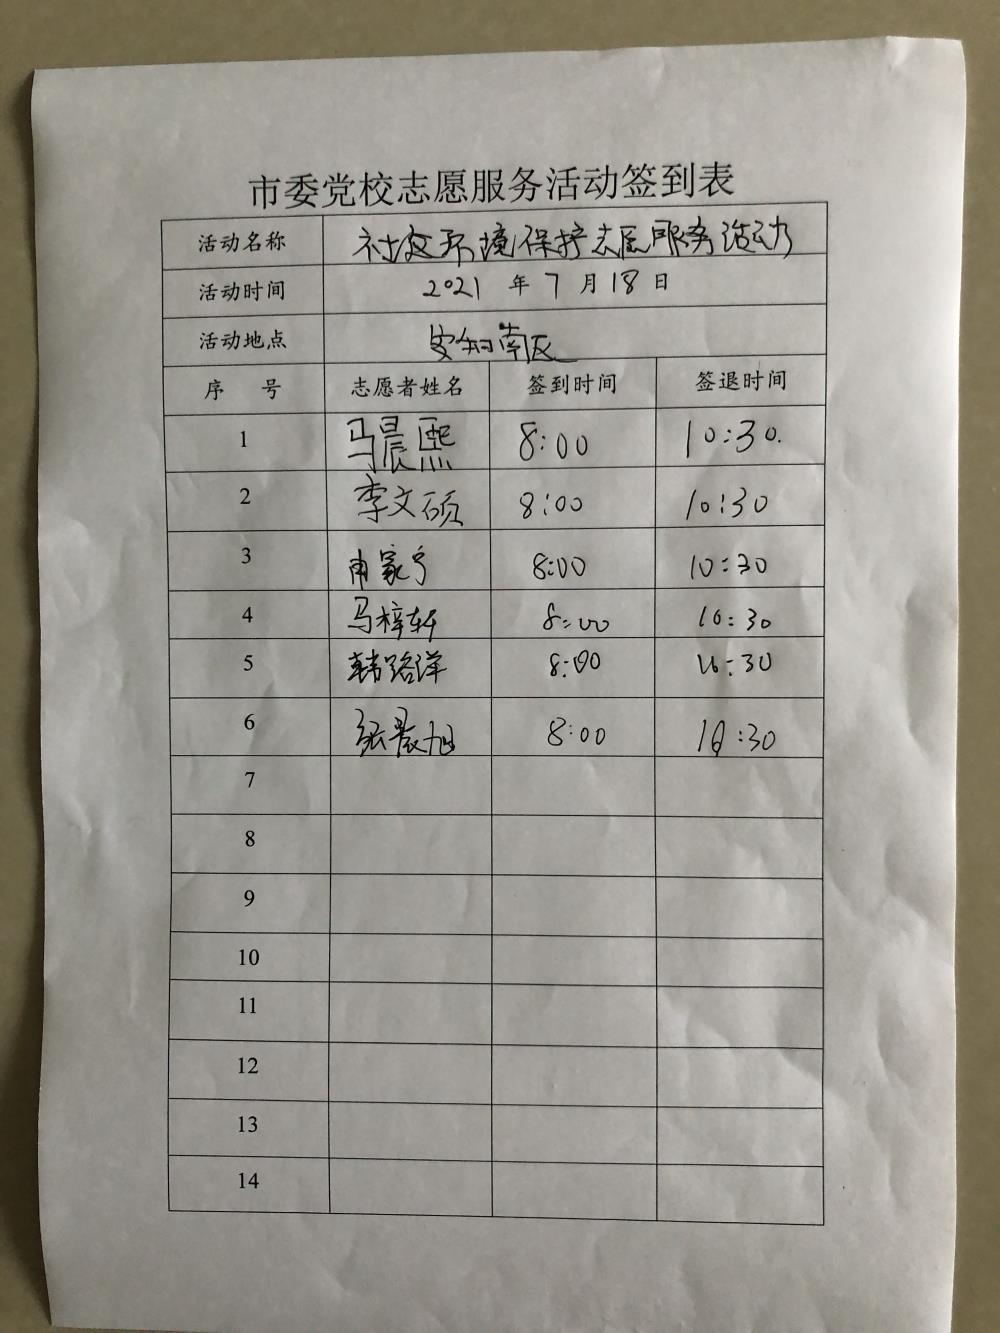 市委党校志愿服务活动签到表
活动名称 社区环境保护志愿服务活动
活动时间 2021 年 7 月 18 日
活动地点 安和南区
序 号 志愿者姓名 签到时间 签退时间
1 马晨熙 8:00 10:30
2 李文硕 8:00 10:30
3 家宁 8:00 10:30
4 马梓轩 8:00 10:30
5 韩路洋 8:00 10:30
6 张晨旭 8:00 10:30
7
8
9
10
11
12
13
14